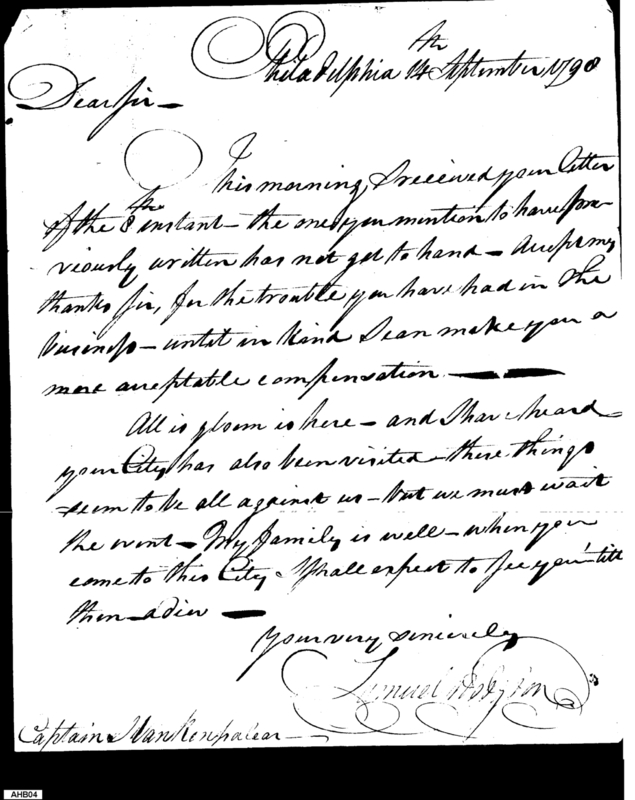 Philadelphia 14th September 1798
Dear Sir —
This morning I received your letter
of the 8th instant — the one you mention to have pre-
viously written has not got to hand — Accept my
thanks Sir, for the trouble you have had in the
business — until in kind I can make you a
more acceptable compensation —
All is gloom is here — and I have heard
your City has also been visited — these things
seem to be all against us — but we must wait
the event — My family is well — when you
come to this City I shall expect to see you till
then — adieu —
Your very sincerely
Samuel Hodgdon
Captain Vankenpalear —
AHB04